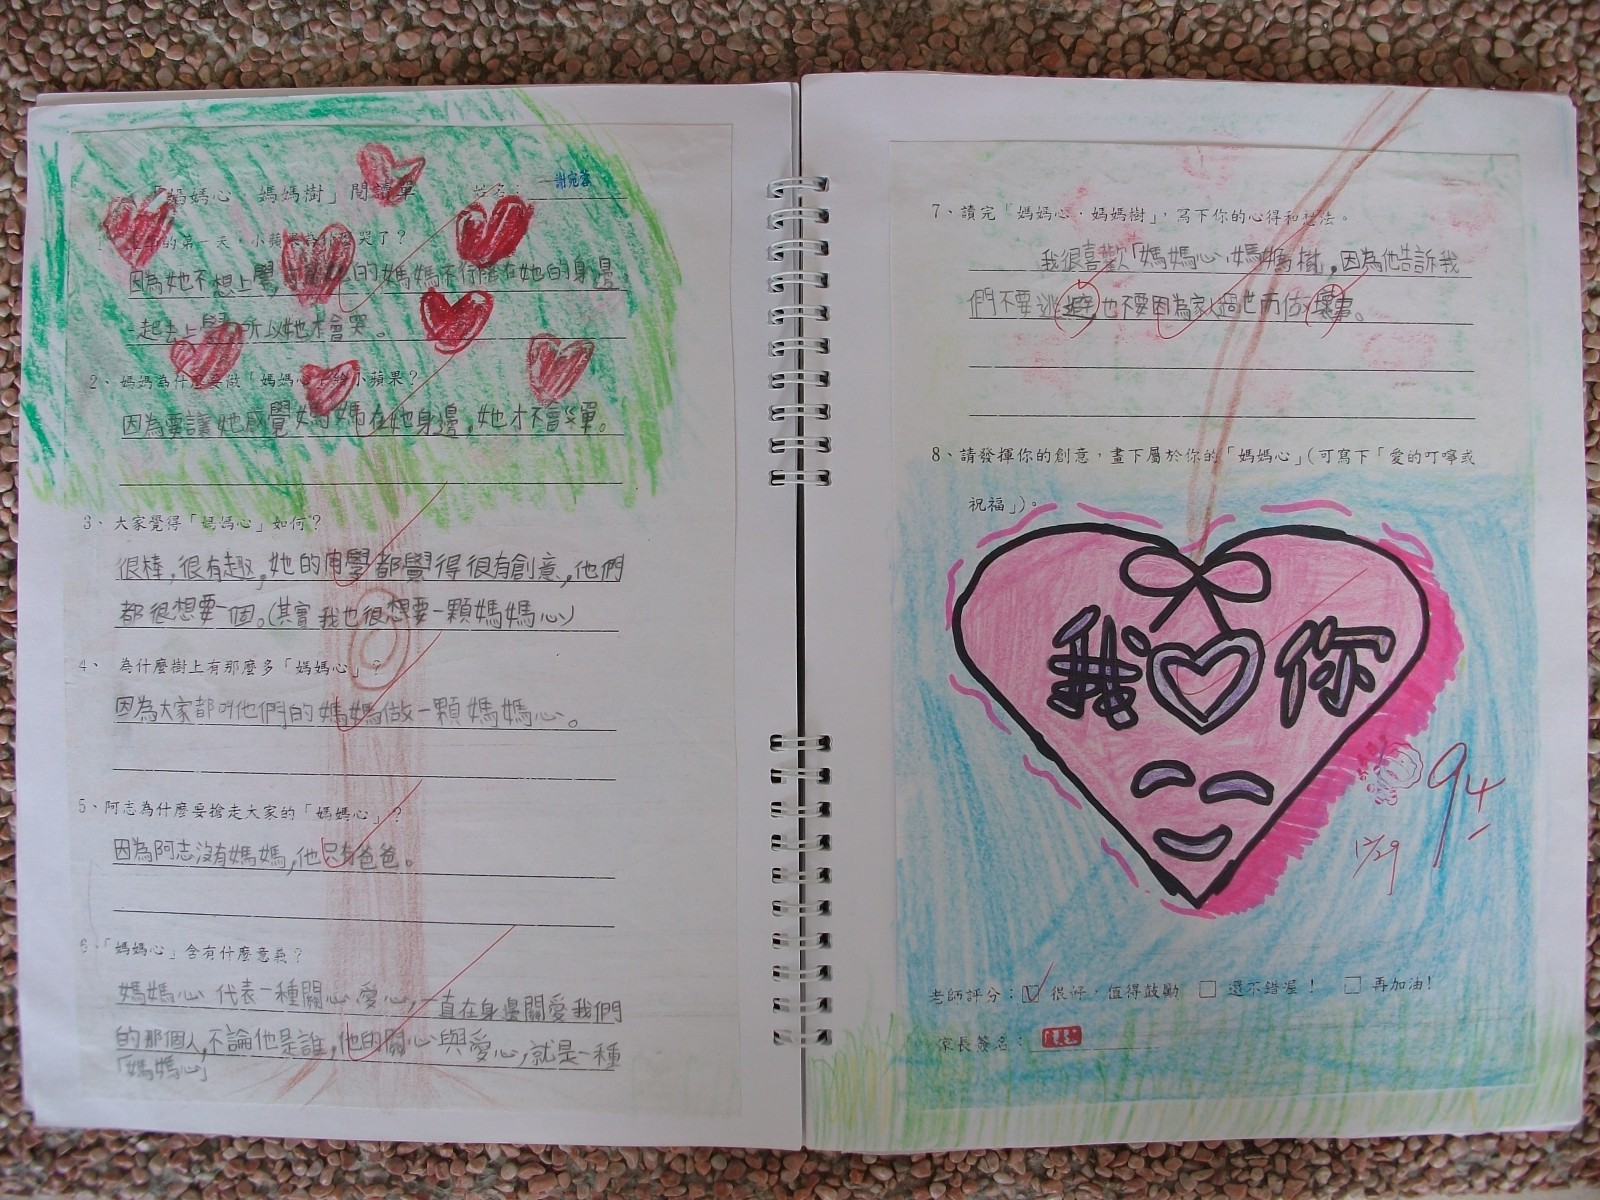 「媽媽心‧媽媽樹」閱讀單 姓名：謝宛蓉
的第一天，小蘋果為什麼哭了？
因為她不想上學，的媽媽不行陪在她的身邊
一起去上學，所以她才會哭。
2、媽媽為什麼要做「媽媽心」給小蘋果？
因為要讓她感覺媽媽在她身邊，她才不會孤單。
3、大家覺得「媽媽心」如何？
很棒，很有趣，她的同學都覺得很有創意，他們
都很想要一個。(其實我也很想要一顆媽媽心)
4、為什麼樹上有那麼多「媽媽心」？
因為大家都叫他們的媽媽做一顆媽媽心。
5、阿志為什麼要搶走大家的「媽媽心」？
因為阿志沒有媽媽，他只有爸爸。
6、「媽媽心」含有什麼意義？
媽媽心代表一種關心、愛心，一直在身邊關愛我們
的那個人，不論他是誰，他的關心與愛心，就是一種
「媽媽心」
7、讀完「媽媽心‧媽媽樹」，寫下你的心得和想法。
我很喜歡「媽媽心、媽媽樹」，因為他告訴我
們不要逃避也不要因為家人過世而做壞事。
8、請發揮你的創意，畫下屬於你的「媽媽心」(可寫下「愛的叮嚀或
祝福」)。
我♡你
94
12/29
老師評分：☑ 很好，值得鼓勵 □ 還不錯喔！ □ 再加油！
家長簽名：